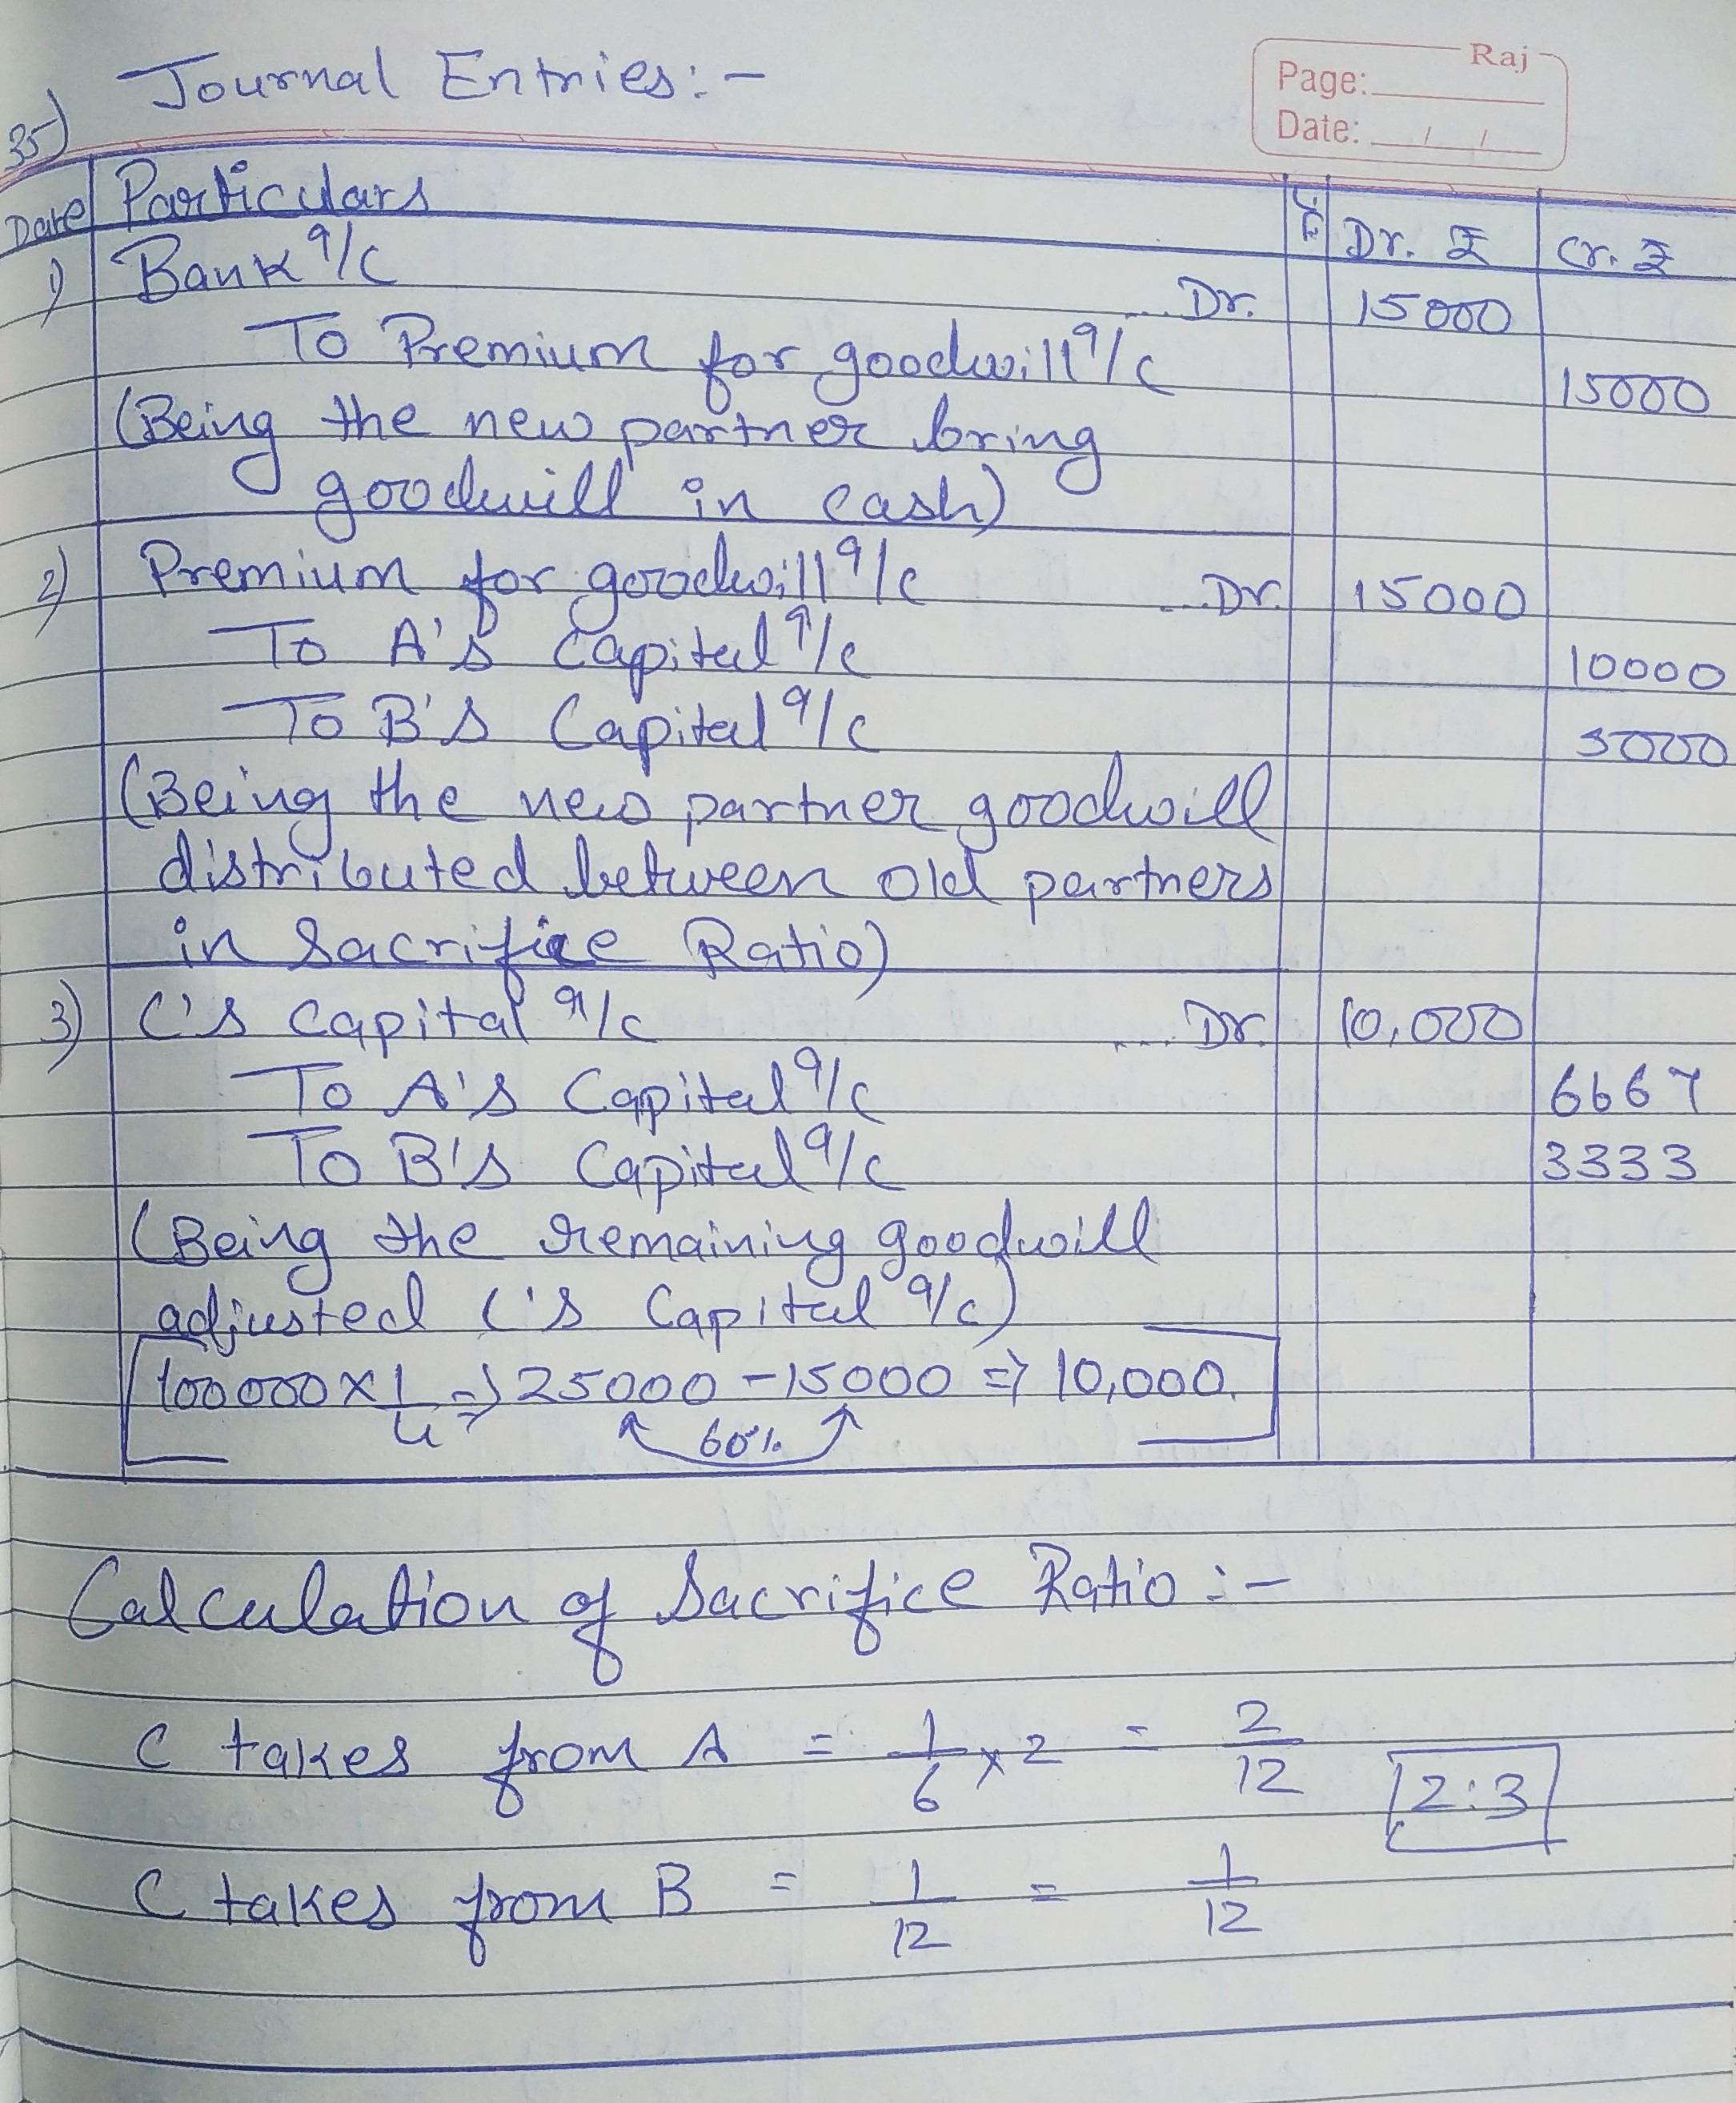 Raj
Page:
Date: / /
35) Journal Entries:-
Date Particulars L.F. Dr. ₹ Cr. ₹
1) Bank a/c ... Dr. 15000
To Premium for goodwill a/c 15000
(Being the new partner bring
goodwill in cash)
2) Premium for goodwill a/c ... Dr. 15000
To A's Capital a/c 10000
To B's Capital a/c 5000
(Being the new partner goodwill
distributed between old partners
in Sacrifice Ratio)
3) C's Capital a/c .... Dr. 10,000
To A's Capital a/c 6667
To B's Capital a/c 3333
(Being the remaining goodwill
adjusted C's Capital a/c)
100000 × 1/4 => 25000 - 15000 => 10,000.
60%
Calculation of Sacrifice Ratio :-
C takes from A = 1/6 × 2 = 2/12
2:3
C takes from B = 1/12 = 1/12